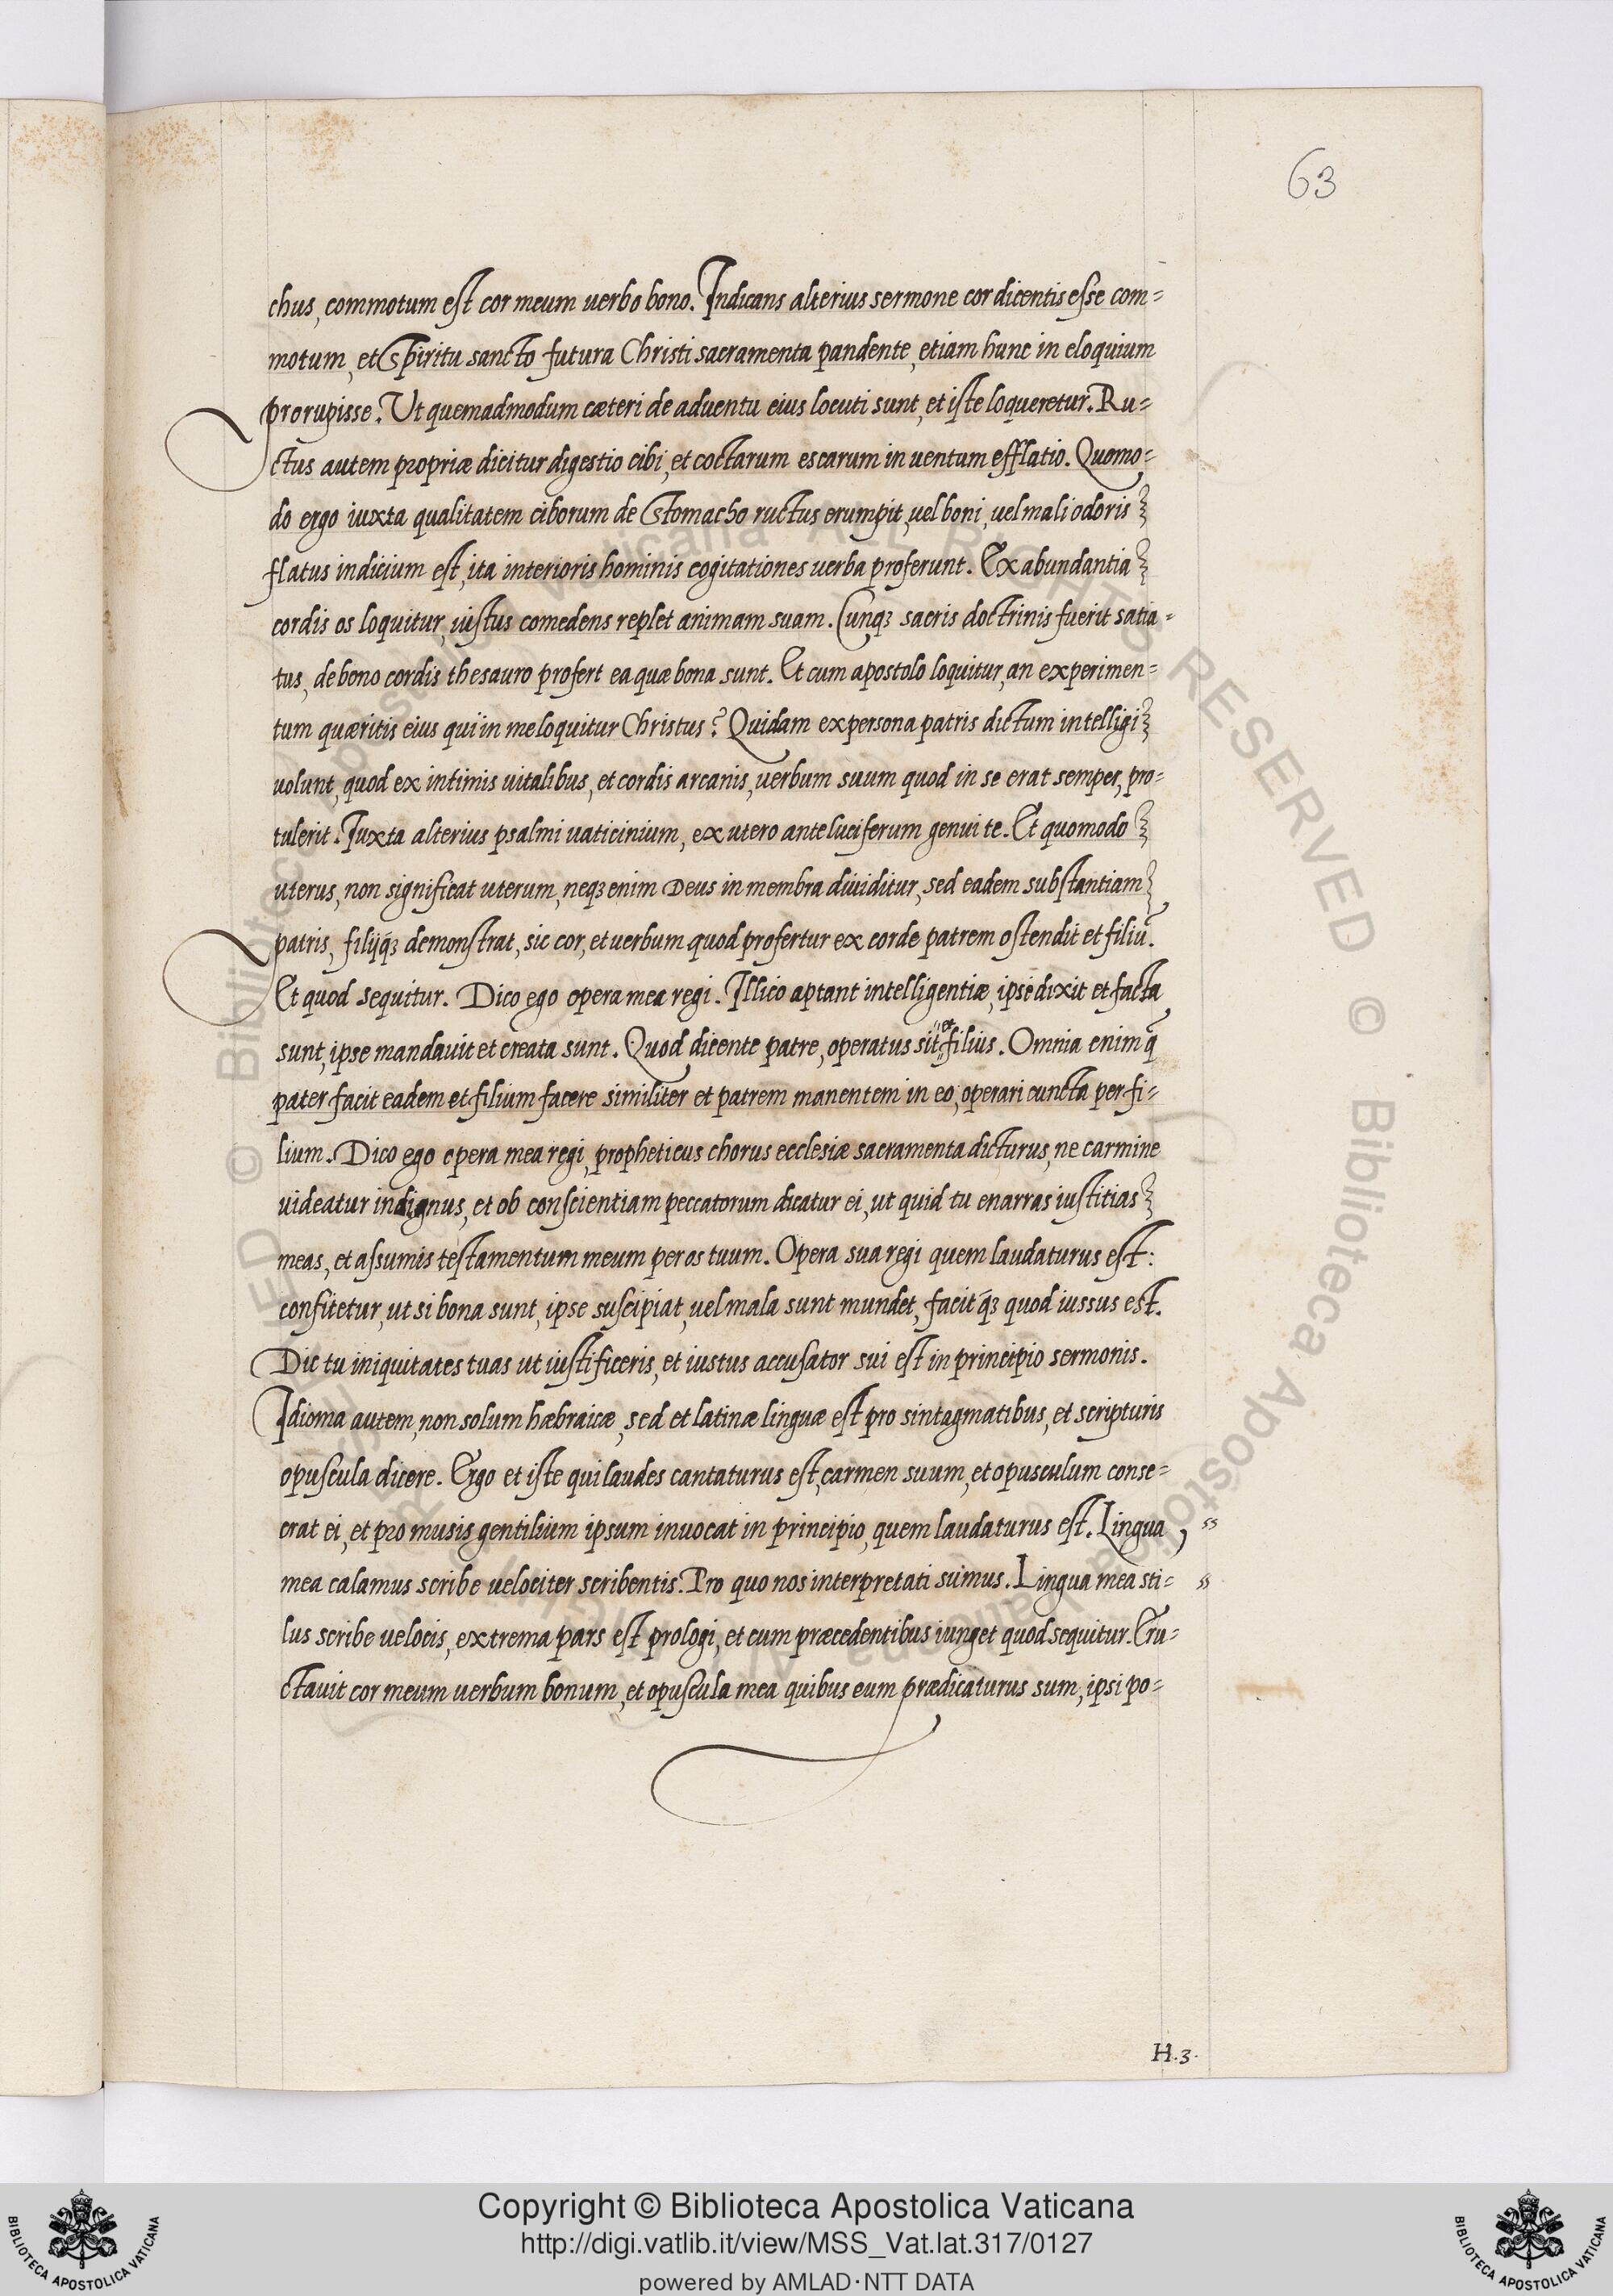 63
chus, commotum est cor meum uerbo bono. Indicans alterius sermone cor dicentis esse com=
motum, et Spiritu sancto futura Christi sacramenta pandente, etiam hunc in eloquium
prorupisse. Ut quemadmodum cæteri de aduentu eius locuti sunt, et iste loqueretur. Ru=
ctus autem propriæ dicitur digestio cibi, et coctarum escarum in uentum efflatio. Quomo=
do ergo iuxta qualitatem ciborum de Stomacho ructus erumpit, uel boni, uel mali odoris
flatus indicium est, ita interioris hominis cogitationes uerba proferunt. Ex abundantia
cordis os loquitur, iustus comedens replet animam suam. Cunqꝫ sacris doctrinis fuerit satia=
tus, de bono cordis thesauro profert ea quæ bona sunt. Et cum apostolo loquitur, an experimen=
tum quæritis eius qui in me loquitur Christus? Quidam ex persona patris dictum intelligi
uolunt, quod ex intimis uitalibus, et cordis arcanis, uerbum suum quod in se erat semper, pro=
tulerit. Iuxta alterius psalmi uaticinium, ex utero ante luciferum genui te. Et quomodo
uterus, non significat uterum, neqꝫ enim Deus in membra diuiditur, sed eadem substantiam
patris, filijqꝫ demonstrat, sic cor, et uerbum quod profertur ex corde patrem ostendit et filiū.
Et quod sequitur. Dico ego opera mea regi. Illico aptant intelligentiæ, ipse dixit et facta
sunt, ipse mandauit et creata sunt. Quod dicente patre, operatus sit et filius. Omnia enim q̄
pater facit eadem et filium facere similiter et patrem manentem in eo, operari cuncta per fi=
lium. Dico ego opera mea regi, propheticus chorus ecclesiæ sacramenta dicturus, ne carmine
uideatur indignus, et ob conscientiam peccatorum dicatur ei, ut quid tu enarras iustitias
meas, et assumis testamentum meum per os tuum. Opera sua regi quem laudaturus est:
confitetur, ut si bona sunt, ipse suscipiat, uel mala sunt mundet, facitqꝫ quod iussus est.
Dic tu iniquitates tuas ut iustificeris, et iustus accusator sui est in principio sermonis.
Idioma autem, non solum hæbraicæ, sed et latinæ linguæ est pro sintagmatibus, et scripturis
opuscula dicere. Ergo et iste qui laudes cantaturus est, carmen suum, et opusculum conse=
crat ei, et pro musis gentilium ipsum inuocat in principio, quem laudaturus est. Lingua
mea calamus scribe uelociter scribentis. Pro quo nos interpretati sumus. Lingua mea sti=
lus scribe uelocis, extrema pars est prologi, et cum præcedentibus iunget quod sequitur. Eru=
ctauit cor meum uerbum bonum, et opuscula mea quibus eum prædicaturus sum, ipsi po=
H.3.
Copyright © Biblioteca Apostolica Vaticana
http://digi.vatlib.it/view/MSS_Vat.lat.317/0127
powered by AMLAD·NTT DATA
BIBLIOTECA APOSTOLICA VATICANA
BIBLIOTECA APOSTOLICA VATICANA